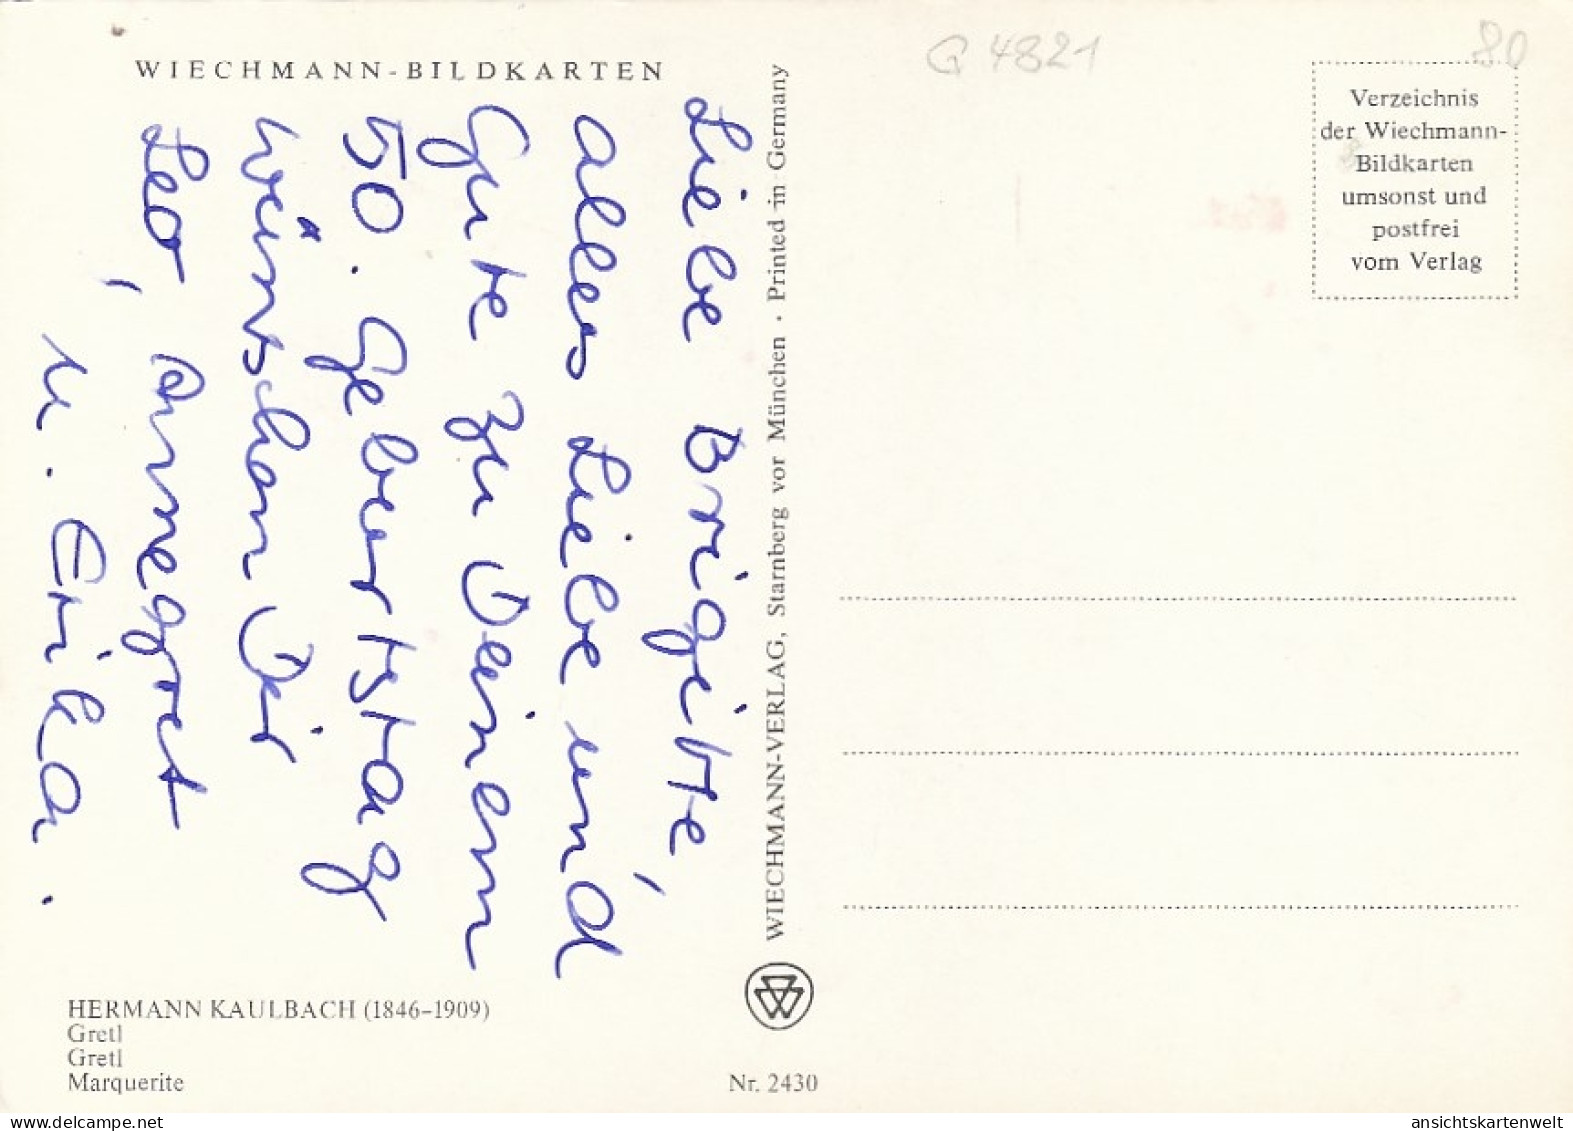 WIECHMANN-BILDKARTEN
Liebe Brigitte,
alles Liebe und
Gute zu Deinem
50. Geburtstag
wünschen Dir
Leo, Annegret
u. Erika.
HERMANN KAULBACH (1846–1909)
Gretl
Gretl
Marquerite
WIECHMANN-VERLAG, Starnberg vor München · Printed in Germany
Nr. 2430
G 4821
80
Verzeichnis
der Wiechmann-
Bildkarten
umsonst und
postfrei
vom Verlag
ansichtskartenwelt